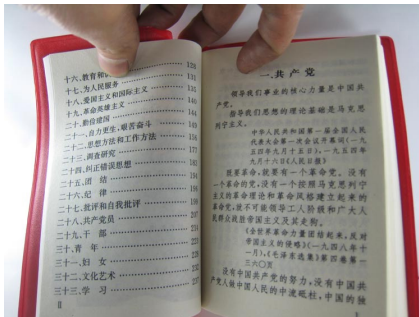 十六、教育和 128
十七、为人民服务 131
十八、爱国主义和国际主义
十九、革命英雄主义
二十、勤俭建国
二十一、自力更生，艰苦奋斗
二十二、思想方法和工作方法
二十三、调查研究
二十四、纠正错误思想
二十五、团 结
二十六、纪 律
二十七、批评和自我批评
二十八、共产党员
二十九、干 部
三十、青 年
三十一、妇 女
三十二、文化艺术
三十三、学 习
II
一、共产党
领导我们事业的核心力量是中国共
产党。
指导我们思想的理论基础是马克思
列宁主义。
中华人民共和国第一届全国人民
代表大会第一次会议开幕词（一
九五四年九月十五日），一九五四年
九月十六日《人民日报》
既要革命，就要有一个革命党。没有
一个革命的党，没有一个按照马克思列宁
主义的革命理论和革命风格建立起来的
革命党，就不可能领导工人阶级和广大人
民群众战胜帝国主义及其走狗。
《全世界革命力量团结起来，反对
帝国主义的侵略》（一九四八年十
一月），《毛泽东选集》第四卷第一
三六〇页
没有中国共产党的努力，没有中国共
产党人做中国人民的中流砥柱，中国的独